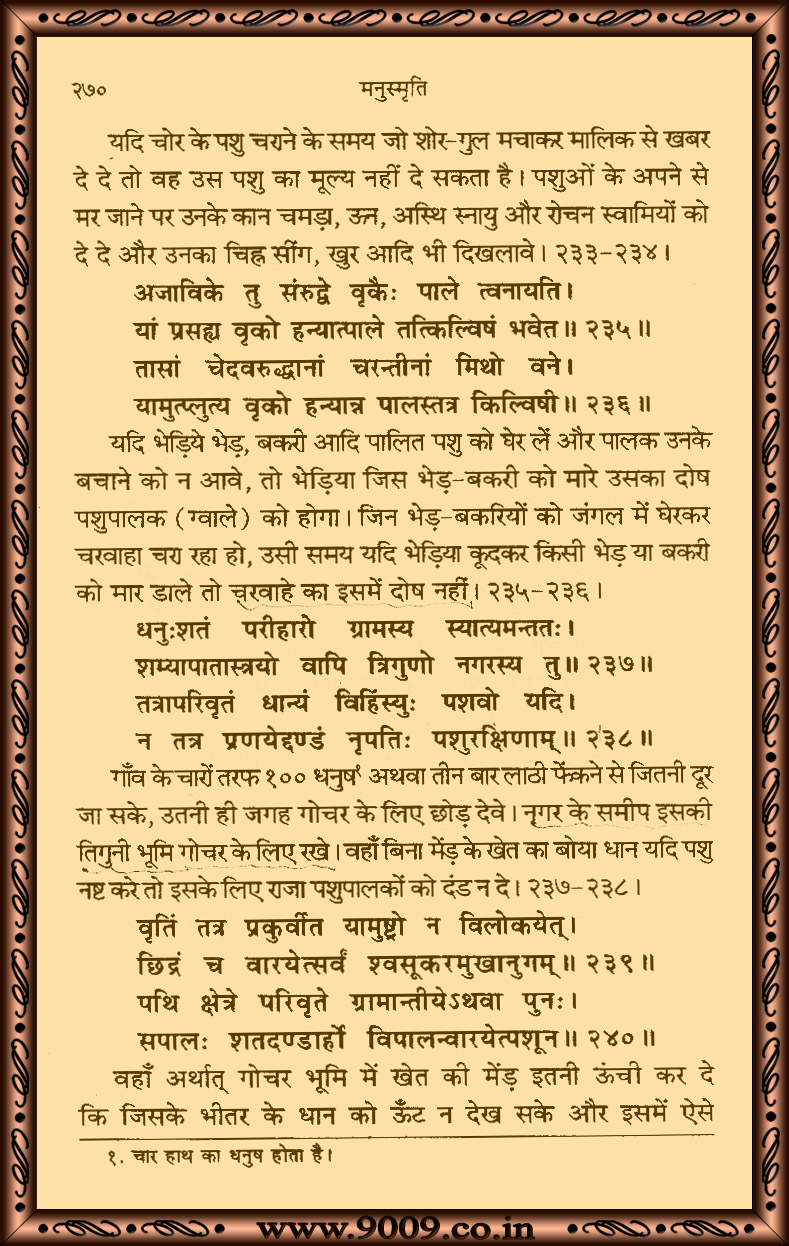 २७० मनुस्मृति
यदि चोर के पशु चराने के समय जो शोर-गुल मचाकर मालिक से खबर
दे दे तो वह उस पशु का मूल्य नहीं दे सकता है। पशुओं के अपने से
मर जाने पर उनके कान चमड़ा, ऊन, अस्थि स्नायु और रोचन स्वामियों को
दे दे और उनका चिह्न सींग, खुर आदि भी दिखलावे। २३३-२३४।
अजाविके तु संरुद्वे वृकैः पाले त्वनायति।
यां प्रसह्य वृको हन्यात्पाले तत्किल्विषं भवेत॥ २३५॥
तासां चेदवरुद्धानां चरन्तीनां मिथो वने।
यामुत्प्लुत्य वृको हन्यान्न पालस्तत्र किल्विषी॥ २३६॥
यदि भेड़िये भेड़, बकरी आदि पालित पशु को घेर लें और पालक उनके
बचाने को न आवे, तो भेड़िया जिस भेड़-बकरी को मारे उसका दोष
पशुपालक (ग्वाले) को होगा। जिन भेड़-बकरियों को जंगल में घेरकर
चरवाहा चरा रहा हो, उसी समय यदि भेड़िया कूदकर किसी भेड़ या बकरी
को मार डाले तो चरवाहे का इसमें दोष नहीं। २३५-२३६।
धनुःशतं परीहारो ग्रामस्य स्यात्यमन्ततः।
शम्यापातास्त्रयो वापि त्रिगुणो नगरस्य तु॥ २३७॥
तत्रापरिवृतं धान्यं विहिंस्युः पशवो यदि।
न तत्र प्रणयेद्दण्डं नृपतिः पशुरक्षिणाम्॥ २३८॥
गाँव के चारों तरफ १०० धनुष¹ अथवा तीन बार लाठी फेंकने से जितनी दूर
जा सके, उतनी ही जगह गोचर के लिए छोड़ देवे। नगर के समीप इसकी
तिगुनी भूमि गोचर के लिए रखे। वहाँ बिना मेंड़ के खेत का बोया धान यदि पशु
नष्ट करे तो इसके लिए राजा पशुपालकों को दंड न दे। २३७-२३८।
वृतिं तत्र प्रकुर्वीत यामुष्ट्रो न विलोकयेत्।
छिद्रं च वारयेत्सर्वं श्वसूकरमुखानुगम्॥ २३९॥
पथि क्षेत्रे परिवृते ग्रामान्तीयेऽथवा पुनः।
सपालः शतदण्डार्हो विपालन्वारयेत्पशून॥ २४०॥
वहाँ अर्थात् गोचर भूमि में खेत की मेंड़ इतनी ऊंची कर दे
कि जिसके भीतर के धान को ऊँट न देख सके और इसमें ऐसे
१. चार हाथ का धनुष होता है।
www.9009.co.in